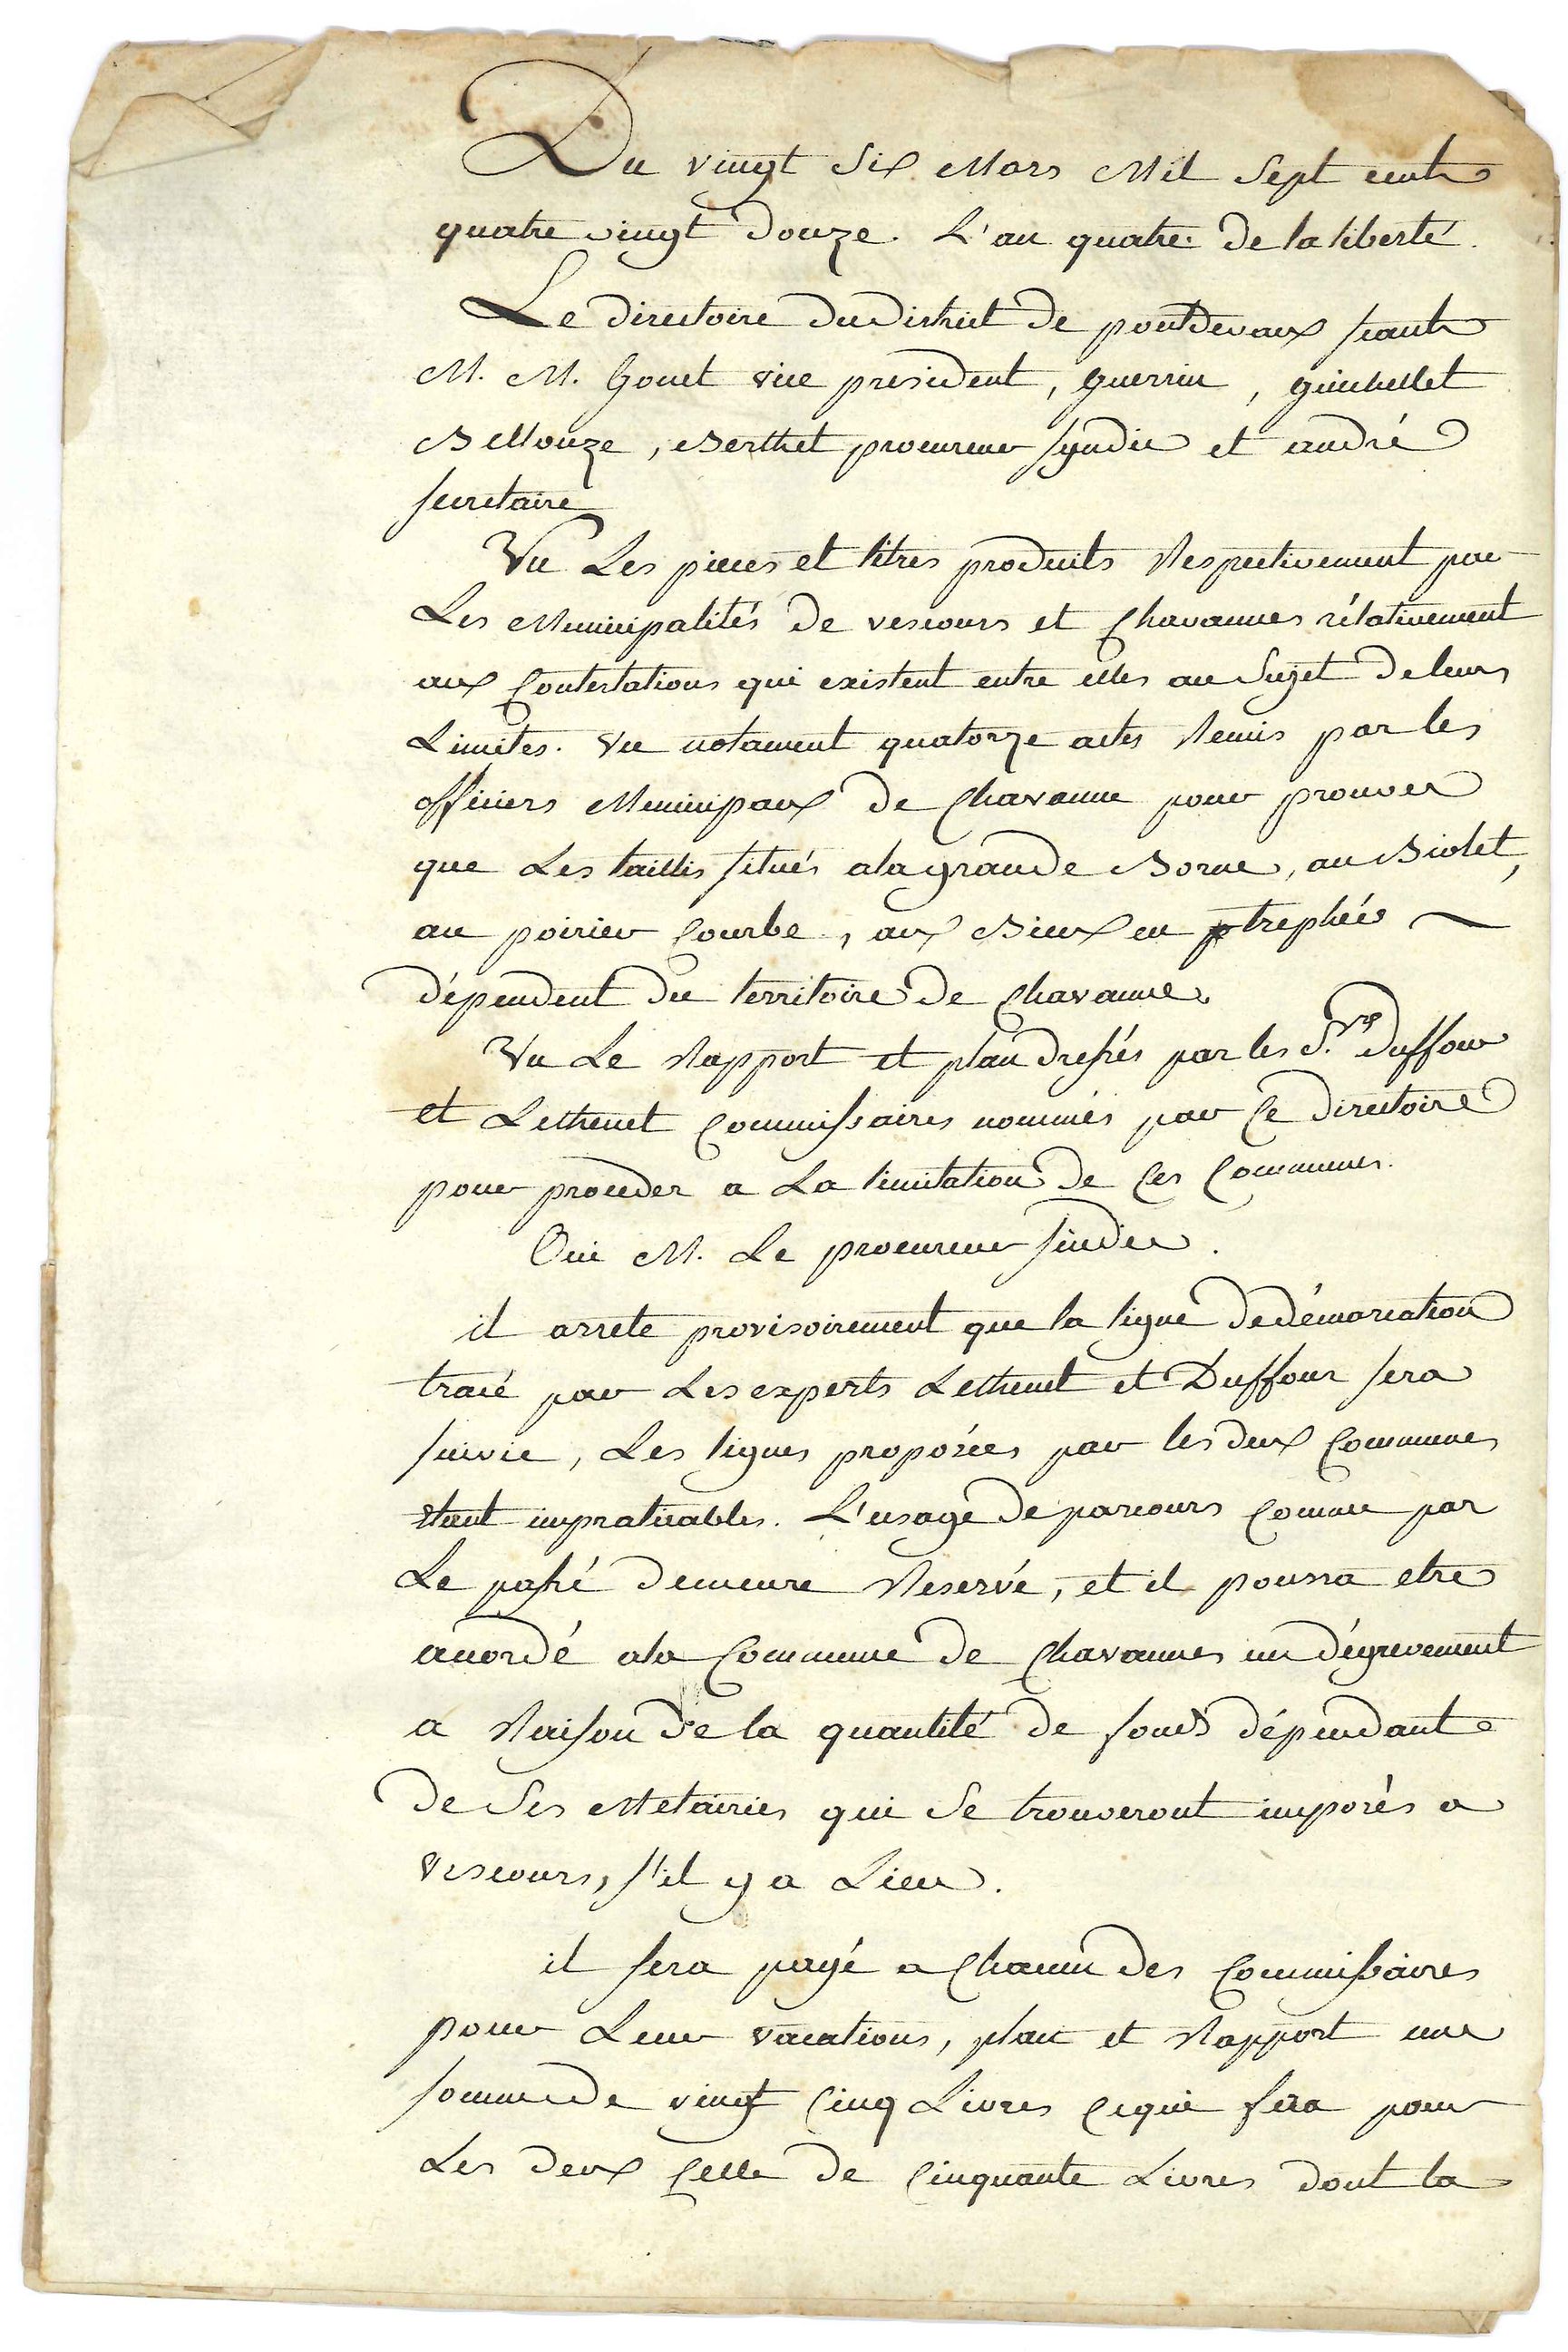 Du vingt Six Mars Mil Sept cent
quatre vingt douze. L'an quatre de la liberté.
Le directoire du District de pontdevaux seant
M. M. Gouet vice president, guerrin, guichellet
Bellouze, Berthet procureur syndic et andré
secretaire
Vu Les pieces et titres produits Respectivement par
Les Municipalités de vescours et Chavannes rélativement
aux Contestations qui existent entre elles au Sujet de leurs
Limites. Vu notament quatorze actes Remis par les
officiers Municipaux de Chavanne pour prouver
que Les taillis situés ala grande Borne, au Biolet,
au poirier Courbe, aux Bieux en trephée
dépendent du territoire de Chavanne.
Vu Le Rapport et plan dressés par les S.rs Duffour
et Lethenet Commissaires nommés par Ce Directoire
pour proceder a La limitation de Ces Communes.
Oui M. Le procureur sindic.
il arrete provisoirement que la ligne de démarcation
tracé par Les experts Lethenet et Duffour sera
suivie, Les lignes proposées par les deux Communes
etant impraticables. L'usage de parcours Comme par
Le passé demeure Reservé, et il pourra etre
accordé ala Commune de Chavannes un dégrevement
a Raison de la quantité de fonds dépendant
de Ses Metairies qui Se trouveront imposés a
Vescours, s'il y a Lieu.
il sera payé a Chacun des Commissaires
pour Leur vacations, plan et Rapport une
somme de vingt Cinq Livres Cequi fera pour
Les deux Celle de Cinquante Livres dont la